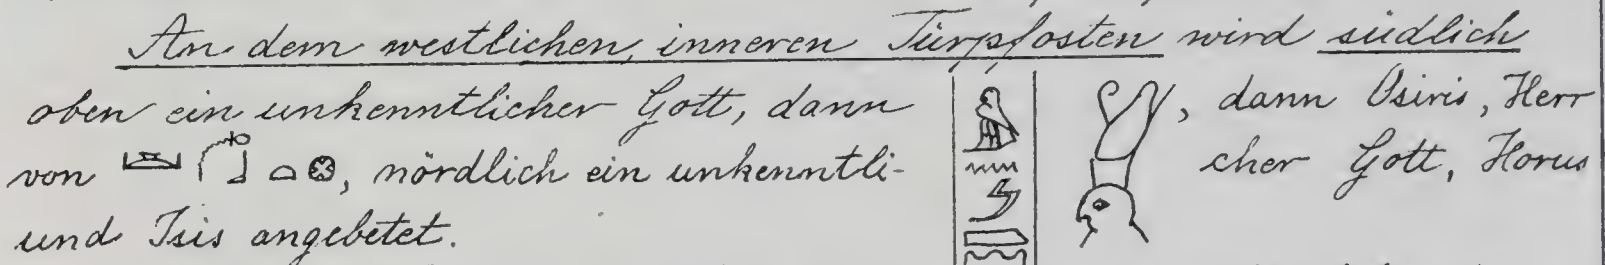 An dem westlichen, inneren Türpfosten wird südlich
oben ein unkenntlicher Gott, dann , dann Osiris, Herr
von , nördlich ein unkenntli- cher Gott, Horus
und Isis angebetet.